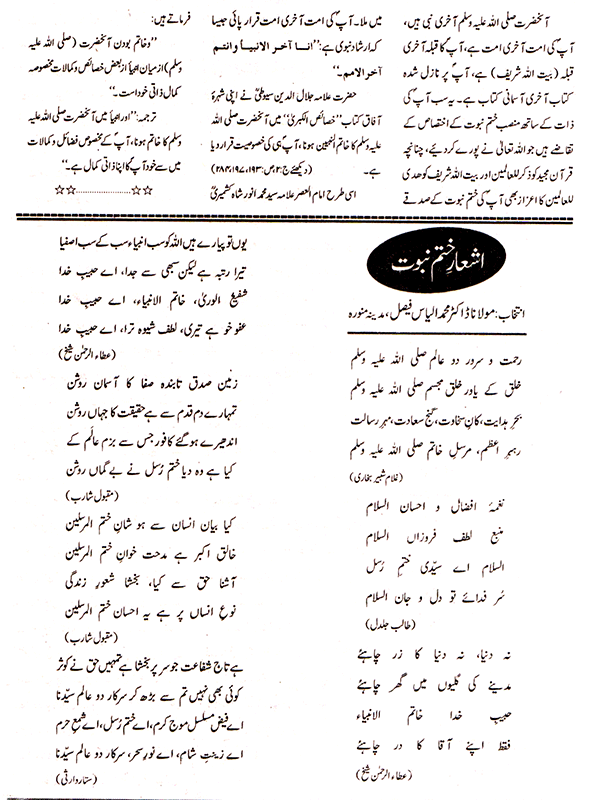 آنحضرت صلی اللہ علیہ وسلم آخری نبی ہیں،
آپ کی امت آخری امت ہے، آپ کا قبلہ آخری
قبلہ (بیت اللہ شریف) ہے، آپ پر نازل شدہ
کتاب آخری آسمانی کتاب ہے۔ یہ سب آپ کی
ذات کے ساتھ منصب ختم نبوت کے اختصاص کے
تقاضے ہیں جو اللہ تعالیٰ نے پورے کردئیے، چنانچہ
قرآن مجید کو ذکر للعالمین اور بیت اللہ شریف کو ھدی
للعالمین کا اعزاز بھی آپ کی ختم نبوت کے صدقے
میں ملا۔ آپ کی امت آخری امت قرار پائی جیسا
کہ ارشاد نبوی ہے: ''انا آخر الانبیا وانتم
آخر الامم۔''
حضرت علامہ جلال الدین سیوطیؒ نے اپنی شہرۂ
آفاق کتاب ''خصائص الکبریٰ'' میں آنحضرت صلی اللہ
علیہ وسلم کا خاتم النبیین ہونا، آپ ہی کی خصوصیت قرار دیا
ہے۔ (دیکھئے ج:۲، ص:۱۹۳، ۱۹۷، ۲۸۴)
اسی طرح امام العصر علامہ سید محمد انور شاہ کشمیریؒ
فرماتے ہیں:
''وخاتم بودن آنحضرت (صلی اللہ علیہ
وسلم) از میان انبیأ از بعض خصائص وکمالات مخصوصہ
کمال ذاتی خود است۔''
ترجمہ: ''اور انبیأ میں آنحضرت صلی اللہ علیہ
وسلم کا خاتم ہونا، آپ کے مخصوص فضائل وکمالات
میں سے خود آپ کا اپنا ذاتی کمال ہے۔''
☆☆..................☆☆
اشعارِ ختم نبوت
انتخاب: مولانا ڈاکٹر محمد الیاس فیصل، مدینہ منورہ
رحمت و سرور دو عالم صلی اللہ علیہ وسلم
خلق کے یاور خلق مجسم صلی اللہ علیہ وسلم
بحر ہدایت، کان سخاوت، گنج سعادت، مہر رسالت
رہبر اعظم، مرسل خاتم صلی اللہ علیہ وسلم
(غلام شبیر بخاری)
نغمۂ افضال و احسان السلام
منبع لطف فروزاں السلام
السلام اے سیّدی ختم رُسل
سُر فدائے تو دل و جان السلام
(طالب جلدل)
نہ دنیا، نہ دنیا کا زر چاہئے
مدینے کی گلیوں میں گھر چاہئے
حبیب خدا خاتم الانبیاء
فقط اپنے آقا کا در چاہئے
(عطاء الرحمٰن شیخ)
یوں تو پیارے ہیں اللہ کو سب انبیاء سب کے سب اصفیا
تیرا رتبہ ہے لیکن سبھی سے جدا، اے حبیب خدا
شفیع الوریٰ، خاتم الانبیاء، اے حبیب خدا
عفو خو ہے تیری، لطف شیوہ ترا، اے حبیب خدا
(عطاء الرحمٰن شیخ)
زمین صدق تابندہ صفا کا آسماں روشن
تمہارے دم قدم سے ہے حقیقت کا جہاں روشن
اندھیرے ہوگئے کافور جس سے بزم عالَم کے
کیا ہے وہ دیا ختم رُسل نے بے گماں روشن
(مقبول شارب)
کیا بیان انسان سے ہو شانِ ختم المرسلین
خالق اکبر ہے مدحت خوانِ ختم المرسلین
آشنا حق سے کیا، بخشا شعورِ زندگی
نوعِ انساں پر ہے یہ احسان ختم المرسلین
(مقبول شارب)
ہے تاج شفاعت جو سر پر بخشا ہے تمہیں حق نے کوثر
کوئی بھی نہیں تم سے بڑھ کر سرکار دو عالم سیّدنا
اے فیض مسلسل موج کرم، اے ختم رُسل، اے شمع حرم
اے زینت شام، اے نور سحر، سرکار دو عالم سیّدنا
(ستار وارثی)